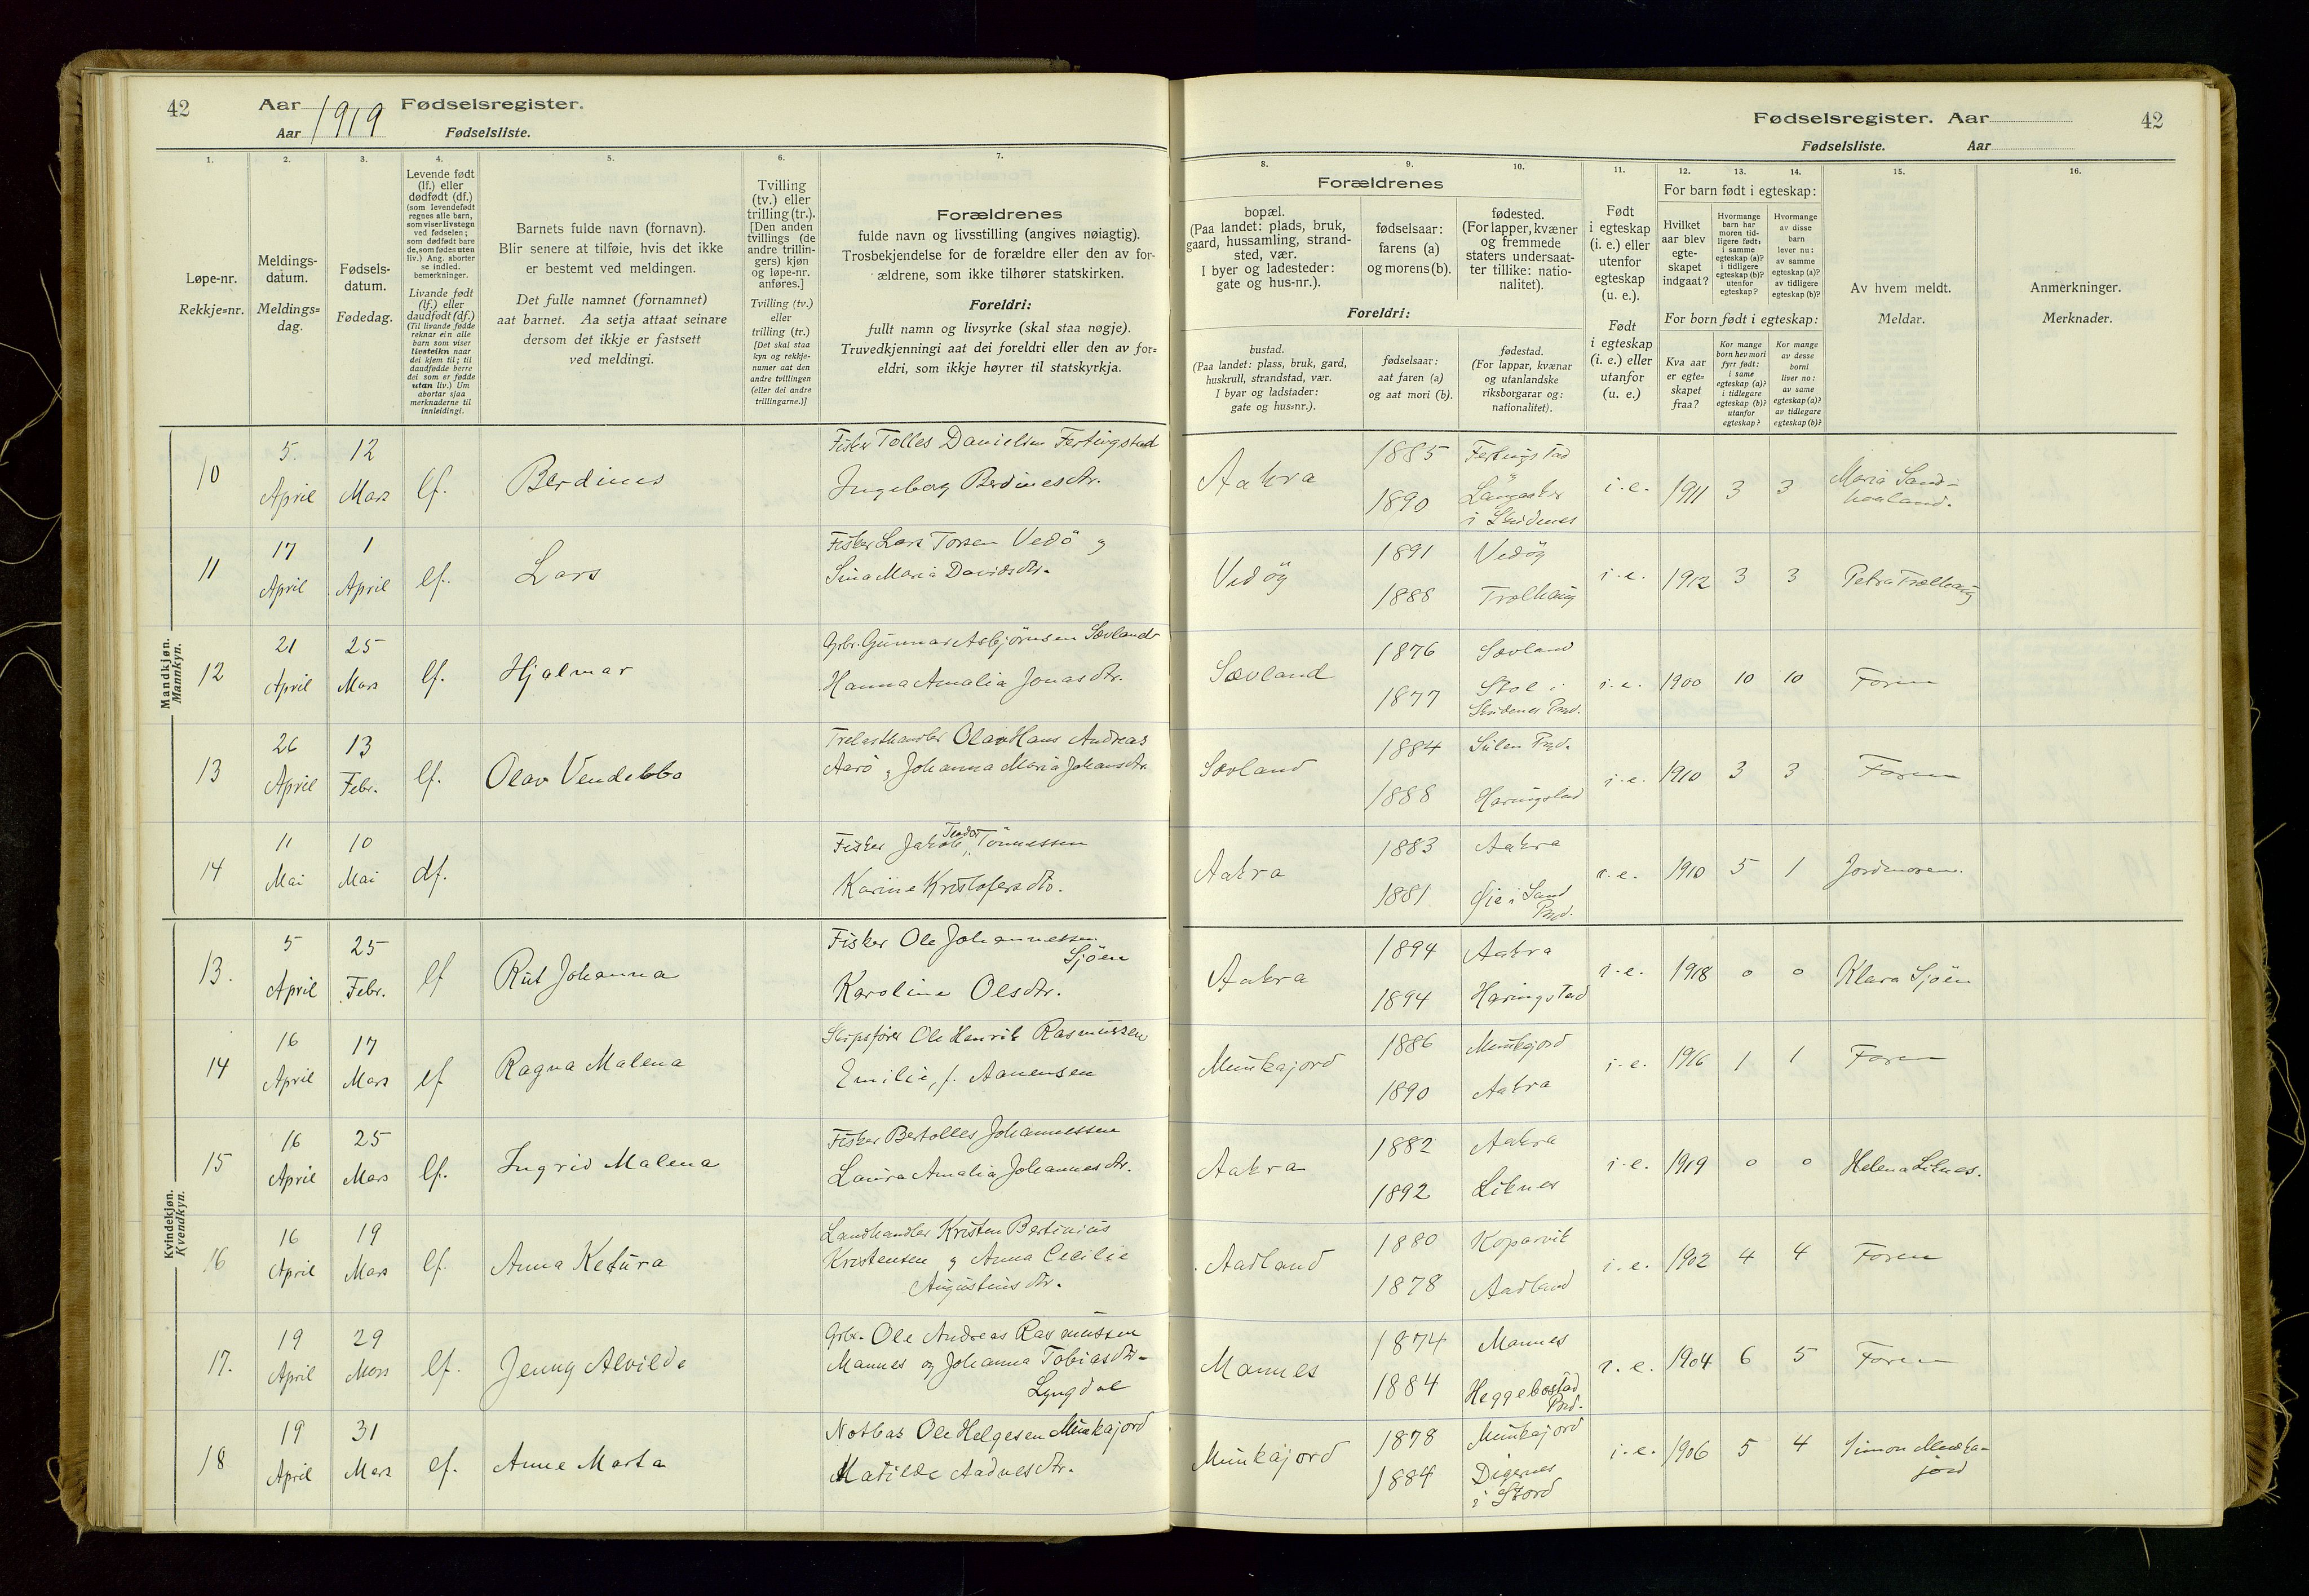 42
Aar 1919 Fødselsregister.
Aar Fødselsliste.
Fødselsregister. Aar
42
Fødselsliste. Aar
1.
Løpe-nr.
Rekkje=nr.
2.
Meldings-
datum.
Meldings=
dag.
3.
Fødsels-
datum.
Fødedag.
4.
Levende født
(lf.) eller
dødfødt (df.)
(som levendefødt
regnes alle barn,
som viser livstegn
ved fødselen;
som dødfødt bare
de, som fødes uten
liv.) Ang. aborter
se indled.
bemerkninger.
Livande født
(lf.) eller
daudfødt (df.)
(Til livande fødde
reknar ein alle
barn som viser
livsteikn naar
dei kjem til; til
daudfødde berre
dei som er fødde
utan liv.) Um
abortar sjaa
merknaderne til
innleidingi.
5.
Barnets fulde navn (fornavn).
Blir senere at tilføie, hvis det ikke
er bestemt ved meldingen.
Det fulle namnet (fornamnet)
aat barnet. Aa setja attaat seinare
dersom det ikkje er fastsett
ved meldingi.
6.
Tvilling
(tv.) eller
trilling (tr.).
[Den anden
tvillings (de
andre trillin-
gers) kjøn
og løpe-nr.
anføres.]
Tvilling (tv.)
eller
trilling (tr.)
[Det skal staa
kyn og rekkje-
numer aat den
andre tvillingen
(eller dei andre
trillingarne.)]
7.
Forældrenes
fulde navn og livsstilling (angives nøiagtig).
Trosbekjendelse for de forældre eller den av for-
ældrene, som ikke tilhører statskirken.
Foreldri:
fullt namn og livsyrke (skal staa nøgje).
Truvedkjenningi aat dei foreldri eller den av for=
eldri, som ikkje høyrer til statskyrkja.
Forældrenes
8.
bopæl.
(Paa landet: plads, bruk,
gaard, hussamling, strand-
sted, vær.
I byer og ladesteder:
gate og hus-nr.).
9.
fødselsaar:
farens (a)
og morens (b).
10.
fødested.
(For lapper, kvæner
og fremmede
staters undersaat-
ter tillike: natio-
nalitet).
Foreldri:
bustad.
(Paa landet: plass, bruk, gard,
huskrull, strandstad, vær.
I byar og ladstader:
gate og hus=nr.).
fødselsaar:
aat faren (a)
og aat mori (b).
fødestad.
(For lappar, kvænar
og utanlandske
riksborgarar og:
nationalitet).
11.
Født
i egteskap
(i. e.) eller
utenfor
egteskap
(u. e.).
Født
i egteskap
(i. e.) eller
utanfor
(u. e.)
For barn født i egteskap:
12.
Hvilket
aar blev
egte-
skapet
indgaat?
13.
Hvormange
barn har
moren tid-
ligere født:
i samme
egteskap (a)?
i tidligere
egteskap (b)?
utenfor
egteskap?
14.
Hvormange
av disse
barn
lever nu:
av samme
egteskap (a)?
av tidligere
egteskap (b)?
For born født i egteskap:
Kva aar
er egte=
skapet
fraa?
Kor mange
born hev mori
fyrr født:
i same
egteskap (a)?
i tidlegare
egteskap (b)?
utanfor
egteskap?
Kor mange
av desse
borni
liver no:
av same
egteskap (a)?
av tidlegare
egteskap (b)?
15.
Av hvem meldt.
Meldar.
16.
Anmerkninger.
Merknader.
Mandkjøn.
Mannkyn.
10
5. April
12 Mars
lf.
Berdines
Fisker Tolles Danielsen Fertingstad
Ingeborg Berdinesdtr.
Aakra
1885
1890
Fertingstad
Langaaker
i Skudenes
i. e.
1911
3
3
Maria Sand-
haaland.
11
17 April
1 April
lf.
Lars
Fisker Lars Torsen Vedö og
Sina Maria Davidsdtr.
Vedöy
1891
1888
Vedöy
Trælhaug
i. e.
1912
3
3
Petra Trælhaug
12
21 April
25 Mars
lf.
Hjalmar
Grbr. Gunnar Asbjörnsen Sævland
Hanna Amalia Jonasdtr.
Sævland
1876
1877
Sævland
Stol i
Skudenes Prgd.
i. e.
1900
10
10
Faren
13
26 April
13 Febr.
lf.
Olav Vendelbo
Trelasthandler Olav Hans Andreas
Aarö, Johanna Maria Johansdtr.
Sævland
1884
1888
Sulen Prgd.
Haringstad
i. e.
1910
3
3
Faren
14
11 Mai
10 Mai
df.
Fisker Jakob Teodor Tönnessen
Karine Kristofersdtr.
Aakra
1883
1881
Aakra
Øie i Sand
Prgd.
i. e.
1910
5
1
Jordmoren.
Kvindekjøn.
Kvendkyn.
13.
5 April
25 Febr.
lf
Rut Johanna
Fisker Ole Johannessen
Sjöen
Karoline Olsdtr.
Aakra
1894
1894
Aakra
Haringstad
i. e.
1918
0
0
Klara Sjöen
14
16 April
17 Mars
lf
Ragna Malena
Skipsfører Ole Henrik Rasmussen
Emilie, f. Aanensen
Munkajord
1886
1890
Munkajord
Aakra
i. e.
1916
1
1
Faren
15
16 April
25 Mars
lf.
Ingrid Malena
Fisker Bertolles Johannessen
Laura Amalia Johannesdtr.
Aakra
1882
1892
Aakra
Liknes
i. e.
1919
0
0
Helena Liknes.
16
16 April
19 Mars
lf.
Anna Ketura
Landhandler Kristen Bertinius
Kristensen og Anna Cecilie
Augustinusdtr.
Aadland
1880
1878
Kopervik
Aadland
i. e.
1902
4
4
Faren
17.
19 April
29 Mars
lf.
Jenny Alvilde
Grbr. Ole Andreas Rasmussen
Mannes og Johanna Tobiasdtr.
Lyngdal
Mannes
1874
1884
Mannes
Heggebostad
Prgd.
i. e.
1904
6
5
Faren
18
19 April
31 Mars
lf.
Anne Marta
Notbas Ole Helgesen Munkajord
Matilde Aadnesdtr.
Munkajord
1878
1884
Munkajord
Digernes
i Stord
i. e.
1906
5
4
Simon Munka-
jord